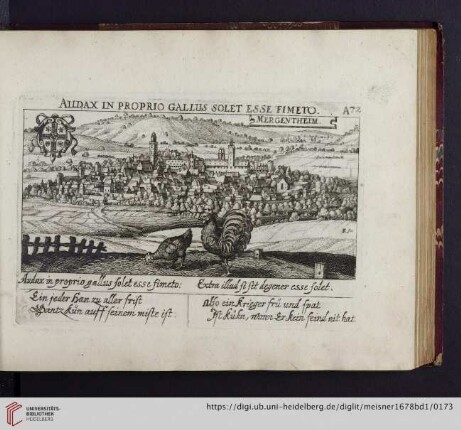 AUDAX IN PROPRIO GALLUS SOLET ESSE FIMETO.
A72
MERGENTHEIM.
Audax in proprio gallus solet esse fimeto:
Extra illud si sit degener esse solet.
Ein jeder Han zu aller frist
Gantz kün auff seinem miste ist.
Also ein Krieger frü und spat
Ist kühn, wenn Er kein feind nit hat.
UNIVERSITÄTS-
BIBLIOTHEK
HEIDELBERG
https://digi.ub.uni-heidelberg.de/diglit/meisner1678bd1/0173